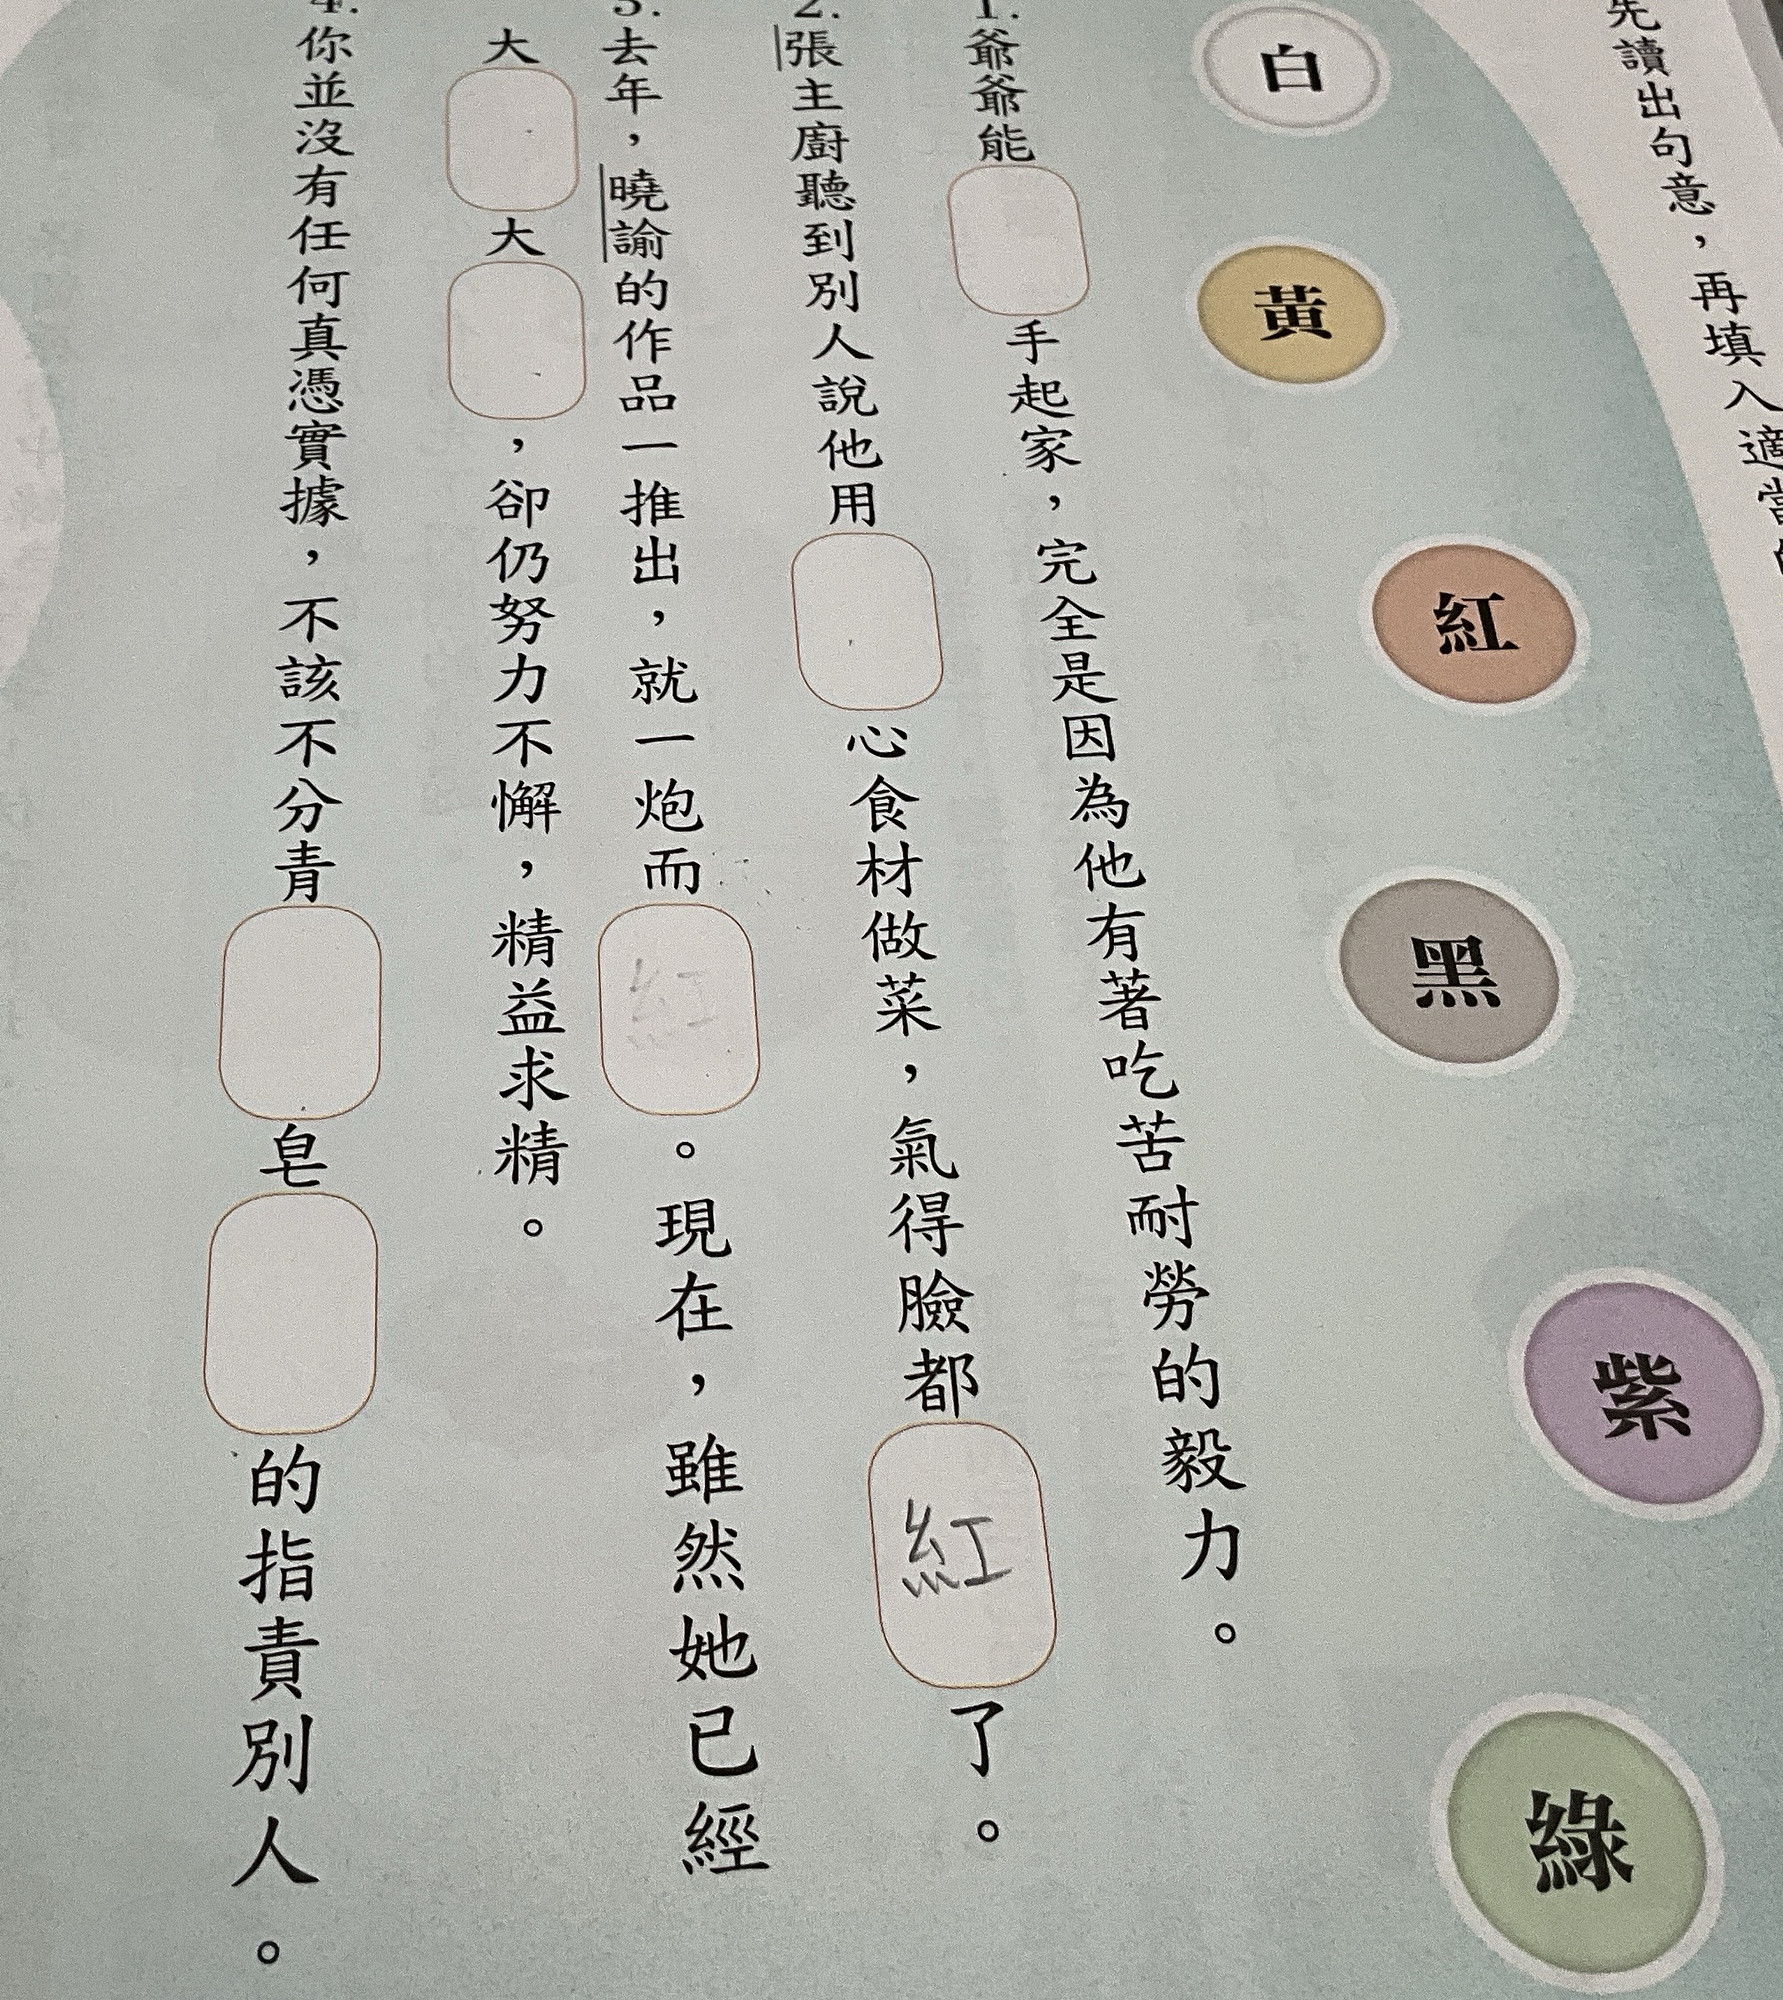 先讀出句意，再填入適當
白
黃
紅
黑
紫
綠
1.爺爺能 手起家，完全是因為他有著吃苦耐勞的毅力。
2.張主廚聽到別人說他用 心食材做菜，氣得臉都紅了。
3.去年，曉諭的作品一推出，就一炮而紅。現在，雖然她已經
大 大 ，卻仍努力不懈，精益求精。
4.你並沒有任何真憑實據，不該不分青 皂 的指責別人。